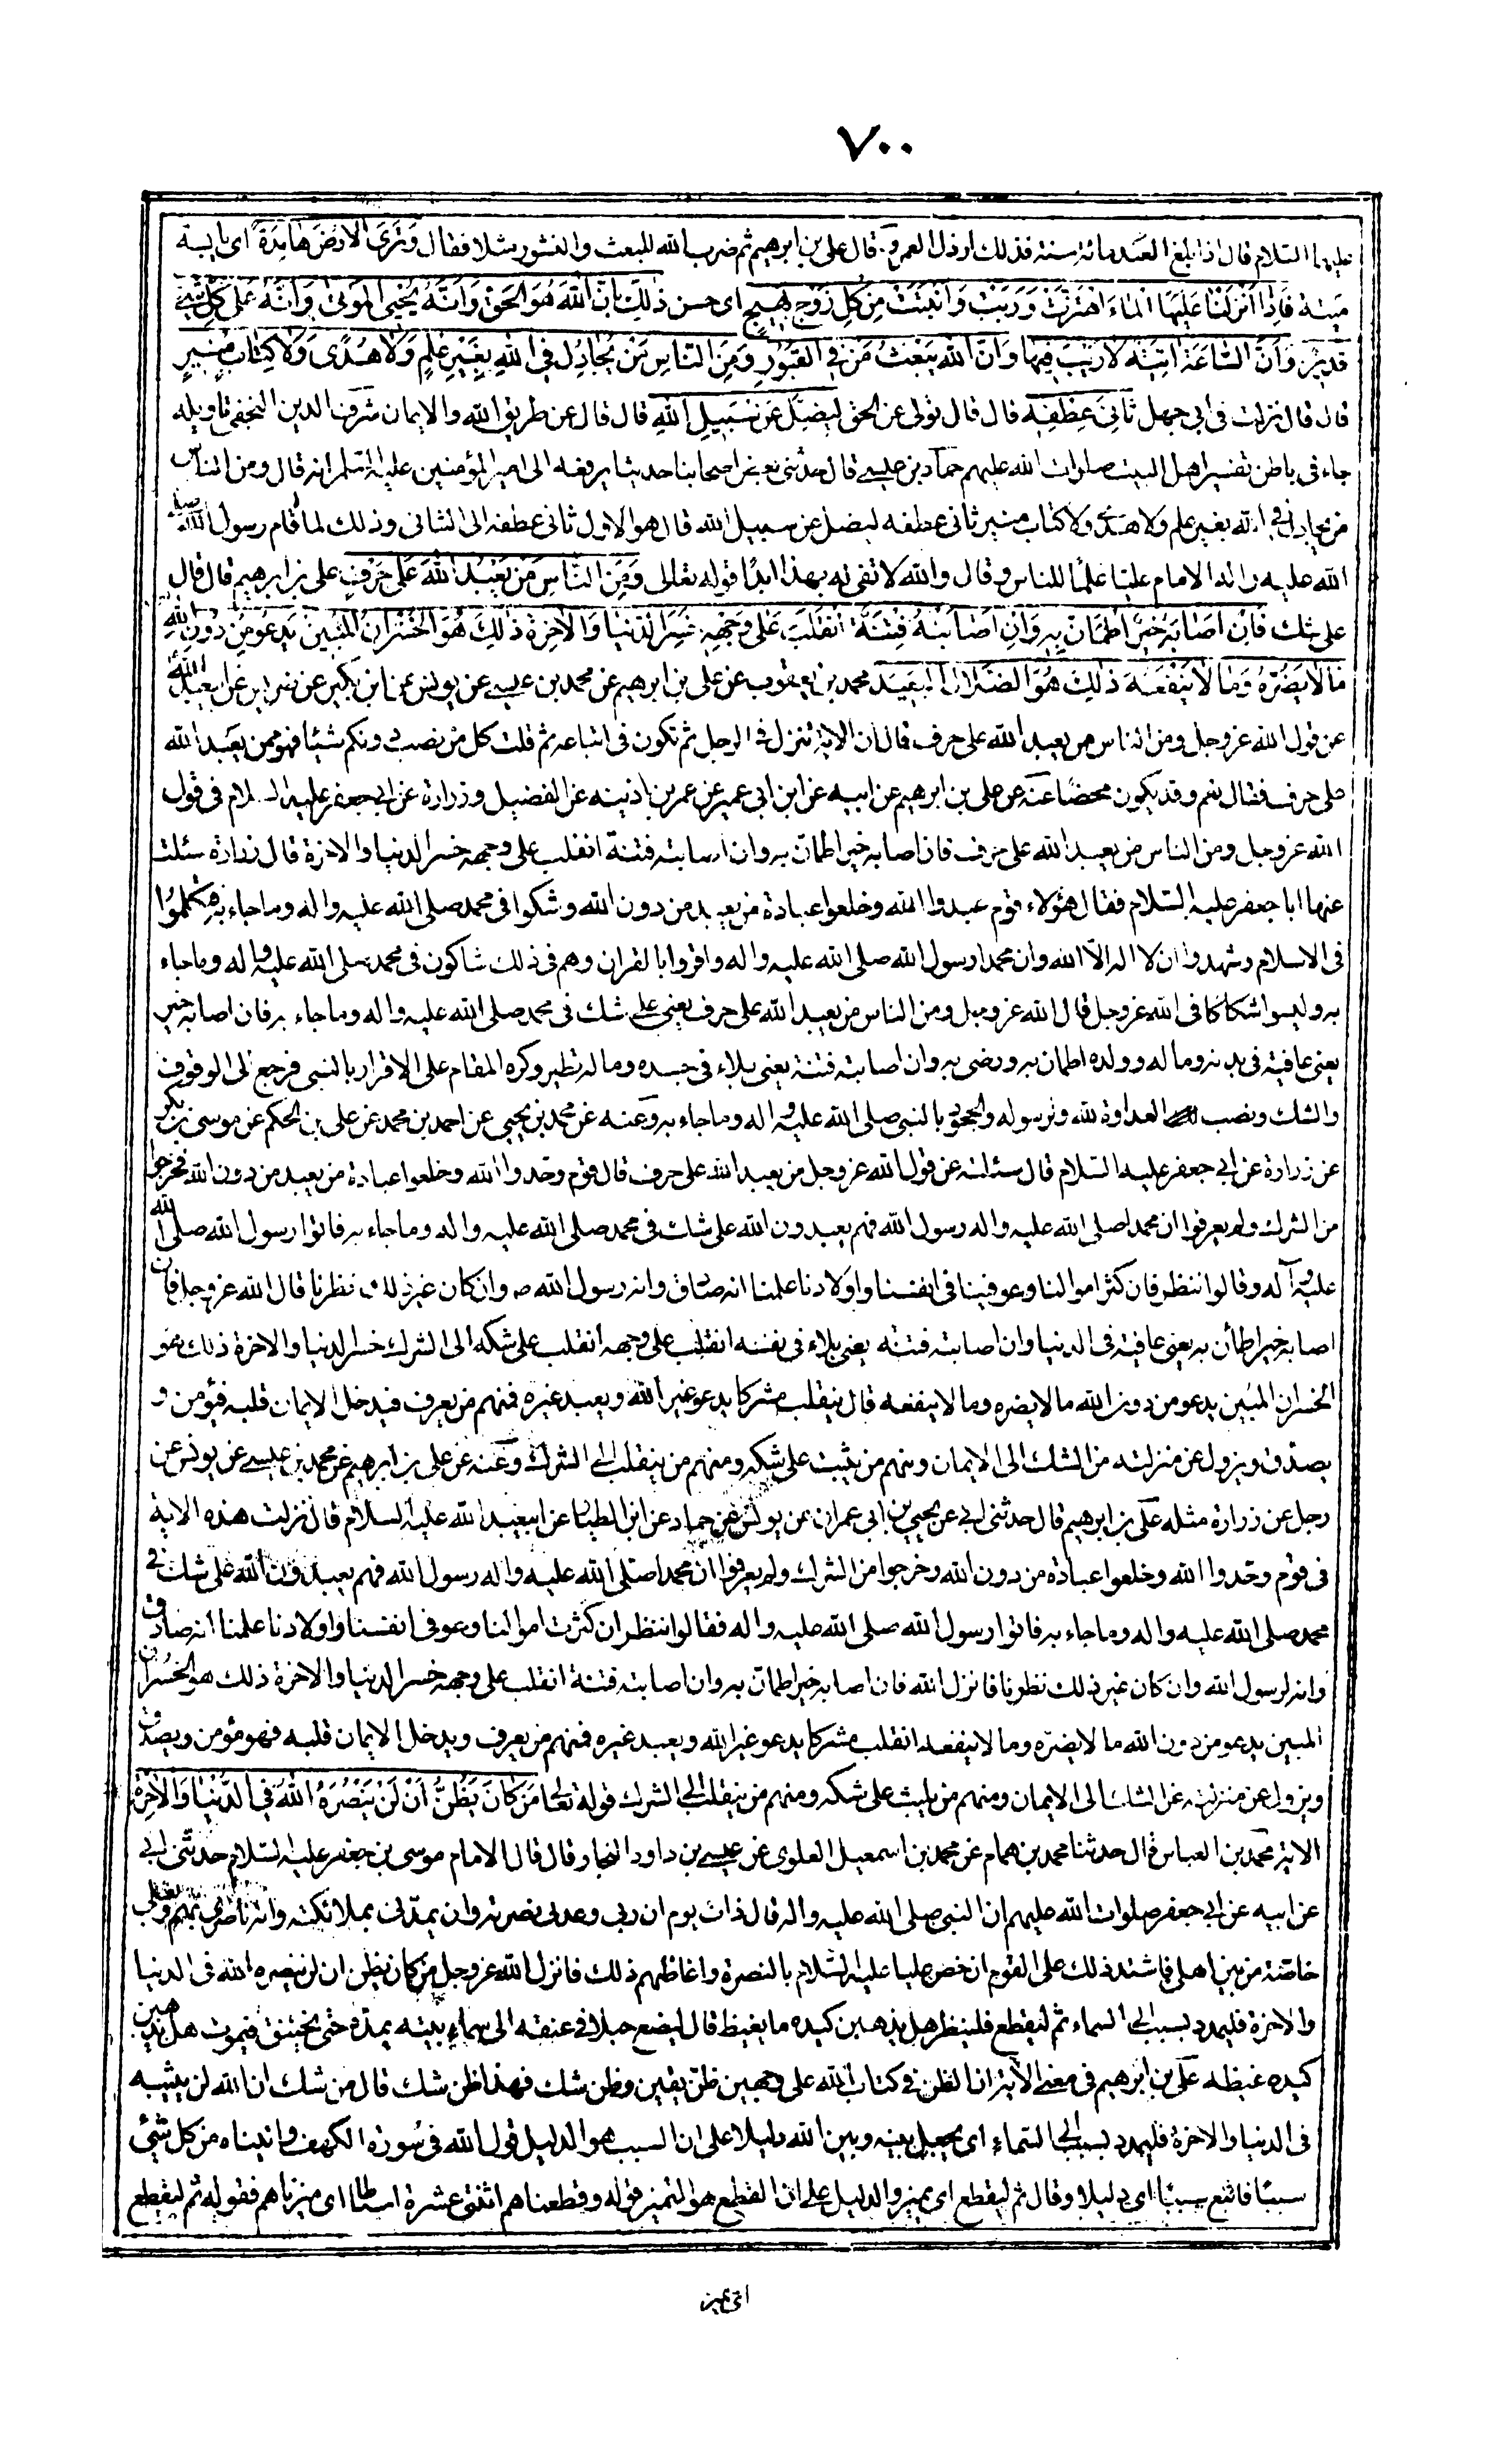 ٧٠٠
عليهما السلام قال اذا بلغ العبد مائة سنة فذلك ارذل العمر و قال على بن ابرهيم ثم ضرب الله للبعث والنشور مثلا فقال وَتَرَى الْاَرْضَ هَامِدَةً اى يابسة
ميتة فَاِذَا اَنْزَلْنَا عَلَيْهَا الْمَاءَ اهْتَزَّتْ وَرَبَتْ وَاَنْبَتَتْ مِنْ كُلِّ زَوْجٍ بَهِيجٍ اى حسن ذٰلِكَ بِاَنَّ اللّٰهَ هُوَ الْحَقُّ وَاَنَّهُ يُحْيِى الْمَوْتىٰ وَاَنَّهُ عَلىٰ كُلِّ شَيْءٍ
قَدِيرٌ وَاَنَّ السَّاعَةَ اٰتِيَةٌ لَا رَيْبَ فِيهَا وَاَنَّ اللّٰهَ يَبْعَثُ مَنْ فِى الْقُبُورِ وَمِنَ النَّاسِ مَنْ يُجَادِلُ فِى اللّٰهِ بِغَيْرِ عِلْمٍ وَلَا هُدًى وَلَا كِتَابٍ مُنِيرٍ
قال قال نزلت فى ابى جهل ثَانِيَ عِطْفِهِ قال قال تولى عن الحق لِيُضِلَّ عَنْ سَبِيلِ اللّٰهِ قال قال عن طريق الله والايمان شرف الدين النجفى تاويله
جاء فى باطن تفسير اهل البيت صلوات الله عليهم حماد بن عيسى قال حدثنى بعض اصحابنا حديثا يرفعه الى امير المؤمنين عليه السلم انه قال ومن الناس
من يجادل فى الله بغير علم ولا هدى ولا كتاب منير ثانى عطفه ليضل عن سبيل الله قال هو الاول ثانى عطفه الى الثانى وذلك لما اقام رسول الله صلى
الله عليه واله الامام عليا علما للناس وقال والله لا نفى له بهذا ابدًا قوله تعالى وَمِنَ النَّاسِ مَنْ يَعْبُدُ اللّٰهَ عَلىٰ حَرْفٍ على بن ابرهيم قال قال
على شك فَاِنْ اَصَابَهُ خَيْرٌ اطْمَاَنَّ بِهِ وَاِنْ اَصَابَتْهُ فِتْنَةٌ انْقَلَبَ عَلىٰ وَجْهِهِ خَسِرَ الدُّنْيَا وَالْاٰخِرَةَ ذٰلِكَ هُوَ الْخُسْرَانُ الْمُبِينُ يَدْعُو مِنْ دُونِ اللّٰهِ
مَا لَا يَضُرُّهُ وَمَا لَا يَنْفَعُهُ ذٰلِكَ هُوَ الضَّلَالُ الْبَعِيدُ محمد بن يعقوب عن على بن ابرهيم عن محمد بن عيسى عن يونس عن ابن بكير عن ضريس عن ابيعبد الله
عن قول الله عز وجل ومن الناس من يعبد الله على حرف قال ان الاية تنزل فى الرجل ثم تكون فى اتباعه ثم قلت كل من نصب دونكم شيئا فهو ممن يعبد الله
على حرف فقال نعم وقد يكون محضًا عنه عن على بن ابرهيم عن ابيه عن ابن ابى عمير عن عمر بن اذينه عن الفضيل وزرارة عن ابى جعفر عليه السلام فى قول
الله عز وجل ومن الناس من يعبد الله على حرف فان اصابه خير اطمان به وان اصابته فتنة انقلب على وجهه خسر الدنيا والاخرة قال زرارة سئلت
عنها ابا جعفر عليه السلام فقال هؤلاء قوم عبدوا الله وخلعوا عبادة من يعبد من دون الله وشكوا فى محمد صلى الله عليه واله وما جاء به فتكلموا
فى الاسلام وشهدوا ان لا اله الا الله وان محمدا رسول الله صلى الله عليه واله واقروا بالقران وهم فى ذلك شاكون فى محمد صلى الله عليه واله وما جاء
به وليسوا شكاكا فى الله عز وجل قال الله عز وجل ومن الناس من يعبد الله على حرف يعنى على شك فى محمد صلى الله عليه واله وما جاء به فان اصابه خير
يعنى عافية فى بدنه وماله وولده اطمان به ورضى به وان اصابته فتنة يعنى بلاء فى جسده وماله تطير وكره المقام على الاقرار بالنبى فرجع الى الوقوف
والشك ونصب العداوة لله ولرسوله والجحود بالنبى صلى الله عليه واله وما جاء به وعنه عن محمد بن يحيى عن احمد بن محمد عن على بن الحكم عن موسى بن بكر
عن زرارة عن ابى جعفر عليه السلام قال سئلته عن قول الله عز وجل من يعبد الله على حرف قال قوم وحدوا الله وخلعوا عبادة من يعبد من دون الله فخرجوا
من الشرك ولم يعرفوا ان محمدا صلى الله عليه واله رسول الله فهم يعبدون الله على شك فى محمد صلى الله عليه واله وما جاء به فاتوا رسول الله صلى الله
عليه واله وقالوا ننظر فان كثر اموالنا وعوفينا فى انفسنا واولادنا علمنا انه صادق وانه رسول الله ص وان كان غير ذلك نظرنا قال الله عز وجل فان
اصابه خير اطمأن به يعنى عافية فى الدنيا وان اصابته فتنة يعنى بلاء فى نفسه انقلب على وجهه انقلب على شكه الى الشرك خسر الدنيا والاخرة ذلك هو
الخسران المبين يدعو من دون الله ما لا يضره وما لا ينفعه قال ينقلب مشركا يدعو غير الله ويعبد غيره فمنهم من يعرف فيدخل الايمان قلبه فيؤمن و
يصدق ويزول عن منزلته من الشك الى الايمان ومنهم من يثبت على شكه ومنهم من ينقلب الى الشرك وعنه عن على بن ابرهيم عن محمد بن عيسى عن يونس عن
رجل عن زرارة مثله على بن ابرهيم قال حدثنى ابى عن يحيى بن ابى عمران عن يونس عن حماد عن ابن الطيار عن ابيعبد الله عليه السلام قال نزلت هذه الاية
فى قوم وحدوا الله وخلعوا عبادة من دون الله وخرجوا من الشرك ولم يعرفوا ان محمدا صلى الله عليه واله رسول الله فهم يعبدون الله على شك فى
محمد صلى الله عليه واله وما جاء به فاتوا رسول الله صلى الله عليه واله فقالوا ننظر ان كثرت اموالنا وعوفى انفسنا واولادنا علمنا انه صادق
وانه لرسول الله وان كان غير ذلك نظرنا فانزل الله فان اصابه خير اطمان به وان اصابته فتنة انقلب على وجهه خسر الدنيا والاخرة ذلك هو الخسران
المبين يدعو من دون الله ما لا يضره وما لا ينفعه انقلب مشركا يدعو غير الله ويعبد غيره فمنهم من يعرف ويدخل الايمان قلبه فهو مؤمن ويصدق
ويزول عن منزلته عن الشك الى الايمان ومنهم من يلبث على شكه ومنهم من ينقلب الى الشرك قوله تعالى مَنْ كَانَ يَظُنُّ اَنْ لَنْ يَنْصُرَهُ اللّٰهُ فِى الدُّنْيَا وَالْاٰخِرَةِ
الاية محمد بن العباس قال حدثنا محمد بن همام عن محمد بن اسمعيل العلوى عن عيسى بن داود النجار قال قال الامام موسى بن جعفر عليه السلام حدثنى ابى
عن ابيه عن ابى جعفر صلوات الله عليهم ان النبى صلى الله عليه واله قال ذات يوم ان ربى وعدنى نصرته وان يمدنى بملائكته وانه ناصرى بهم وبعلى
خاصة من بين اهلى فاشتد ذلك على القوم ان خص عليا عليه السلام بالنصرة واغاظهم ذلك فانزل الله عز وجل من كان يظن ان لن ينصره الله فى الدنيا
والاخرة فليمدد بسبب الى السماء ثم ليقطع فلينظر هل يذهبن كيده ما يغيظ قال ليضع حبلا فى عنقه الى سماء بيته يمده حتى يختنق فيموت هل يذهبن
كيده غيظه على بن ابرهيم فى معنى الاية ان الظن فى كتاب الله على وجهين ظن يقين وظن شك فهذا ظن شك قال من شك ان الله لن يثيبه
فى الدنيا والاخرة فليمدد بسبب الى السماء اى يجعل بينه وبين الله دليلا على ان السبب هو الدليل قول الله فى سورة الكهف واتيناه من كل شئ
سببا فاتبع سببا اى دليلا وقال ثم ليقطع اى يميز والدليل على ان القطع هو التميز قوله وقطعناهم اثنتى عشرة اسباطا اى ميزناهم فقوله ثم ليقطع
اى يميز